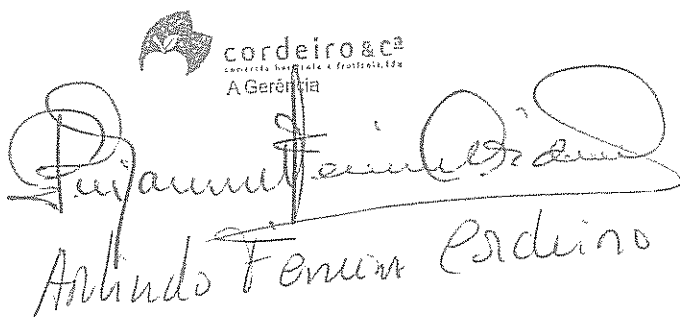 cordeiro & cª
comercio hortícola e frutícola, lda
A Gerência
Ferreira
Arlindo Ferreira Cordeiro